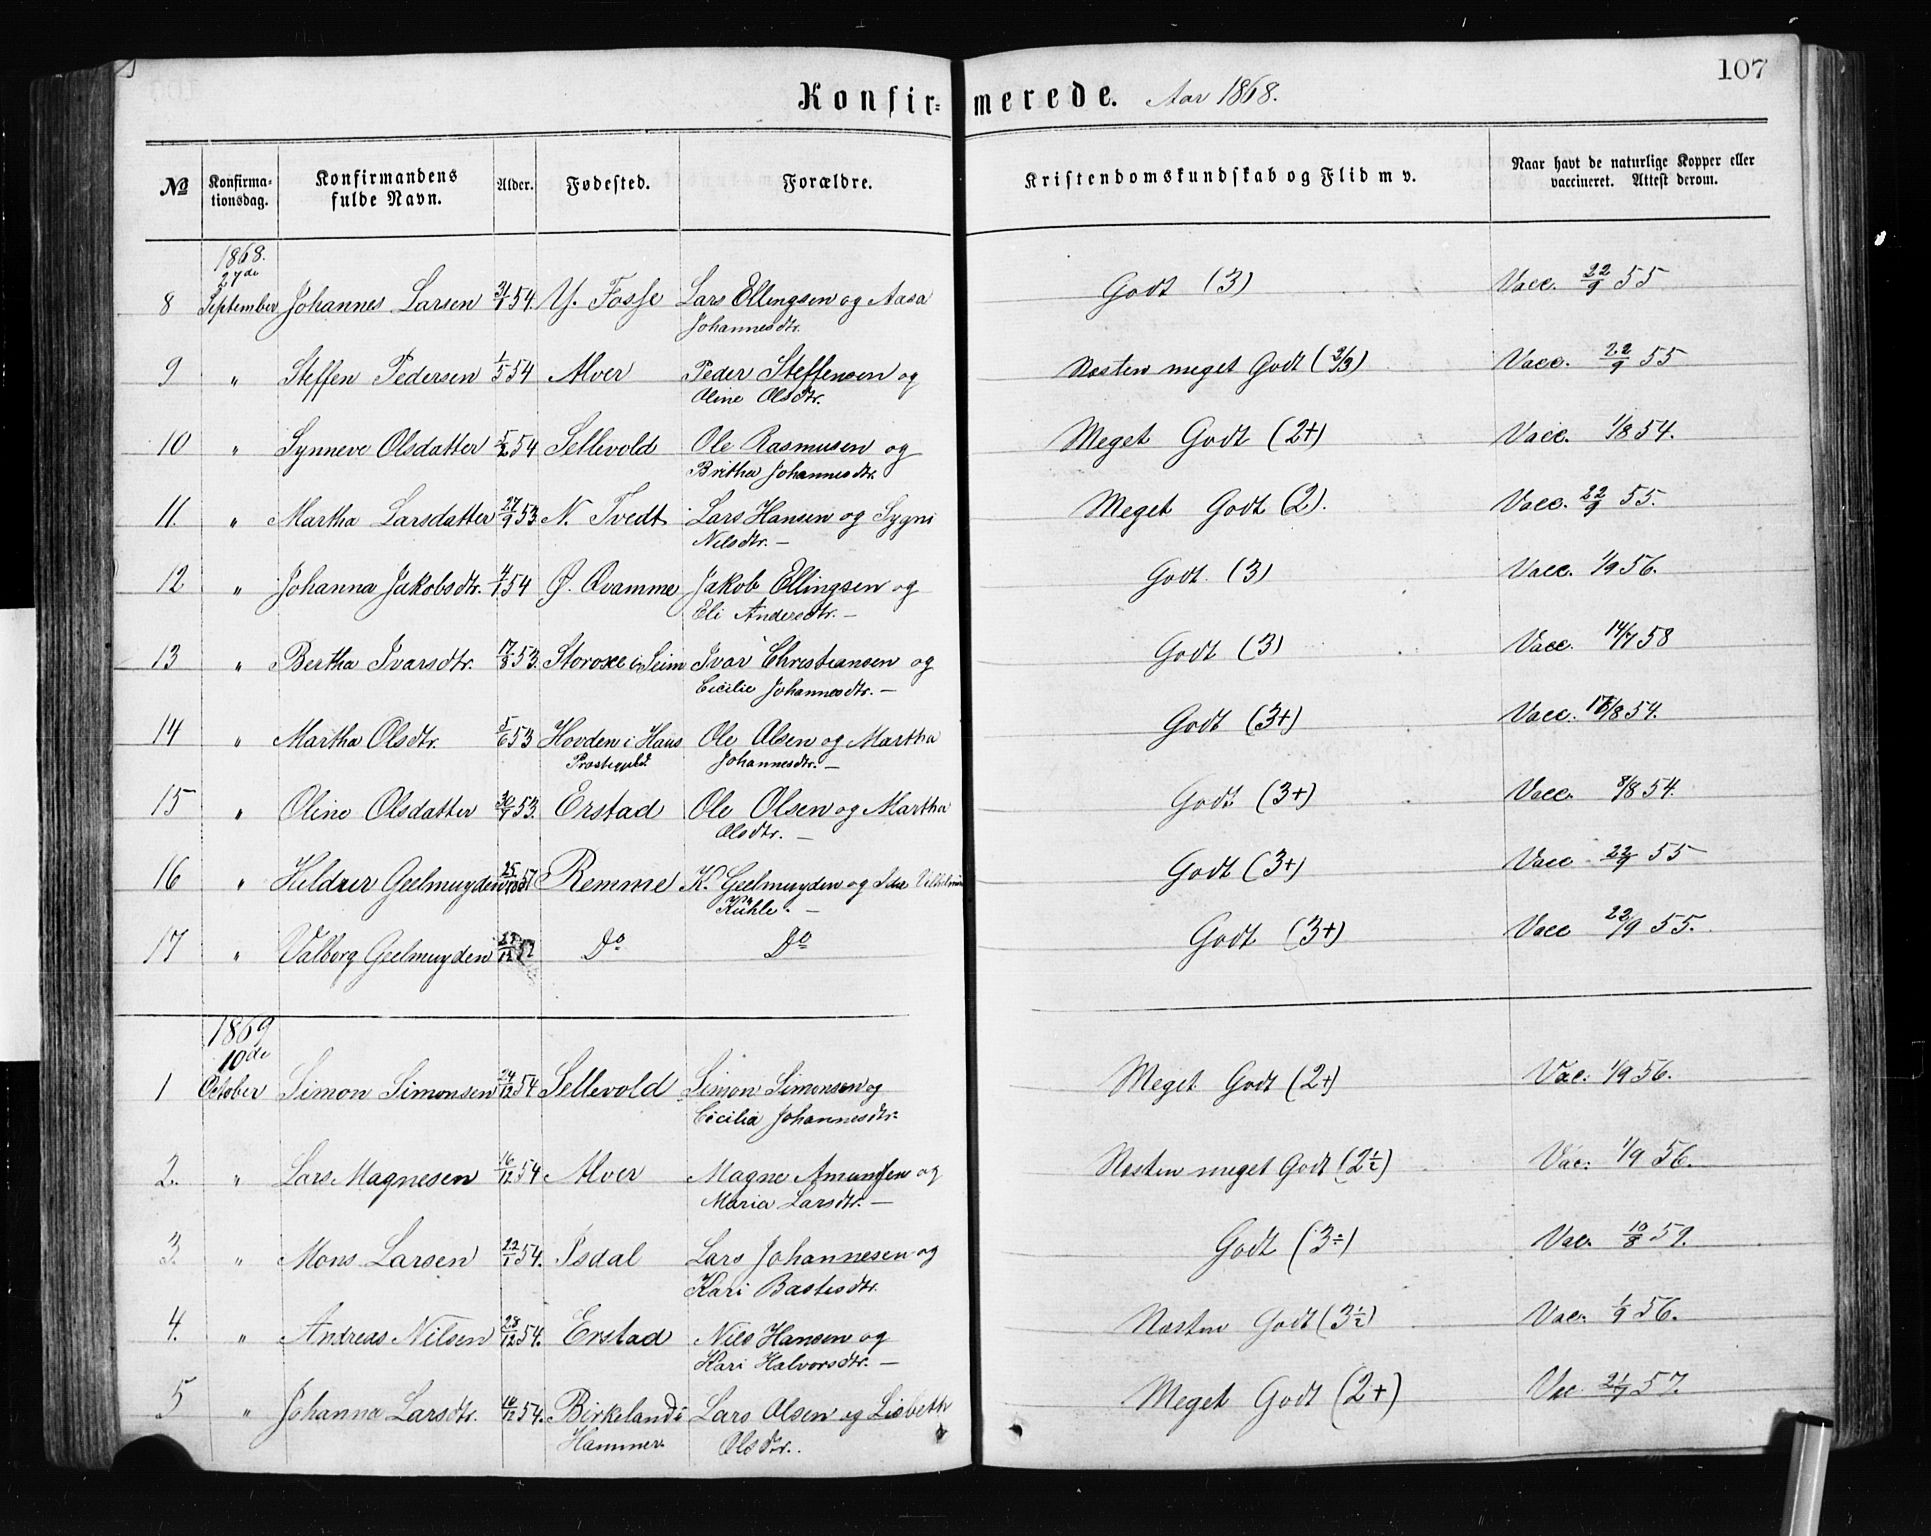 107
Konfirmerede. Aar 1868.
№ Konfirma-tionsdag. Konfirmandens fulde Navn. Alder. Fødested. Forældre. Kristendomskundskab og Flid m v. Naar havt de naturlige Kopper eller vaccineret. Attest derom.
1868.
27de
8 September Johannes Larsen 54. Y. Fosse Lars Ellingsen og Aasa Godt (3) Vacc. 22/9 55
Johannesdtr.
9 " Steffen Pedersen 1/5 54 Alver Peder Steffensen og Næsten meget Godt (2/3) Vacc. 22/9 55
Oline Olsdtr.
10 " Synneve Olsdatter 54 Sellevold Ole Rasmusen og Meget Godt (2+) Vacc. 1/8 54.
Britha Johannesdtr.
11. " Martha Larsdatter 27/9 53. N. Tvedt Lars Hansen og Sygni Meget Godt (2). Vacc. 22/9 55.
Nilsdtr. —
12 " Johanna Jakobsdtr. 4/1 54 Ø. Qvamme Jakob Ellingsen og Godt. (3) Vacc. 1/9 56.
Eli Andersdtr. —
13 " Bertha Ivarsdtr. 17/8 53. i Seim Ivar Christiansen og Godt (3) Vacc. 14/7 58
Cicilie Johannesdtr. —
14 " Martha Olsdtr. 5/6 53 Hovden i Haus Ole Olsen og Martha Godt (3+) Vacc. /8 54.
Præstegjeld. Johannesdtr. —
15 " Oline Olsdatter 30/9 53. Erstad Ole Olsen og Martha Godt (3+) Vacc. 8/8 54.
Olsdtr. —
16 " Geelmuyden Remme K. Geelmuyden og Ida Godt (3+) Vacc 22/9 55
Kühle. —
17 " Valborg Geelmuyden Do Do Godt (3+) Vacc 22/9 55.
1869
10de
1 October Simon Simonsen 24/12 54 Sellevold Simon Simonsen og Meget Godt (2+) Vac. 1/9 56.
Cicilia Johannesdtr.
2. " Lars Magnesen 16/12 54 Alver Magne Amundsen og Næsten meget Godt (2½) Vac. 1/9 56.
Maria Larsdtr. —
3. " Mons Larsen 22/1 54. Isdal Lars Johannesen og Godt (3÷) Vac. 10/8 59.
Kari Bastesdtr.
4. " Andreas Nilsen 28/12 54. Erstad Nils Hansen og Næsten Godt (3½) Vac. 1/9 56.
Kari Halvorsdtr. —
5 " Johanna Larsdtr. 16/12 54. Birkeland i Lars Olsen og Lisbeth Meget Godt (2+) Vac. 57.
Hammer Olsdtr.